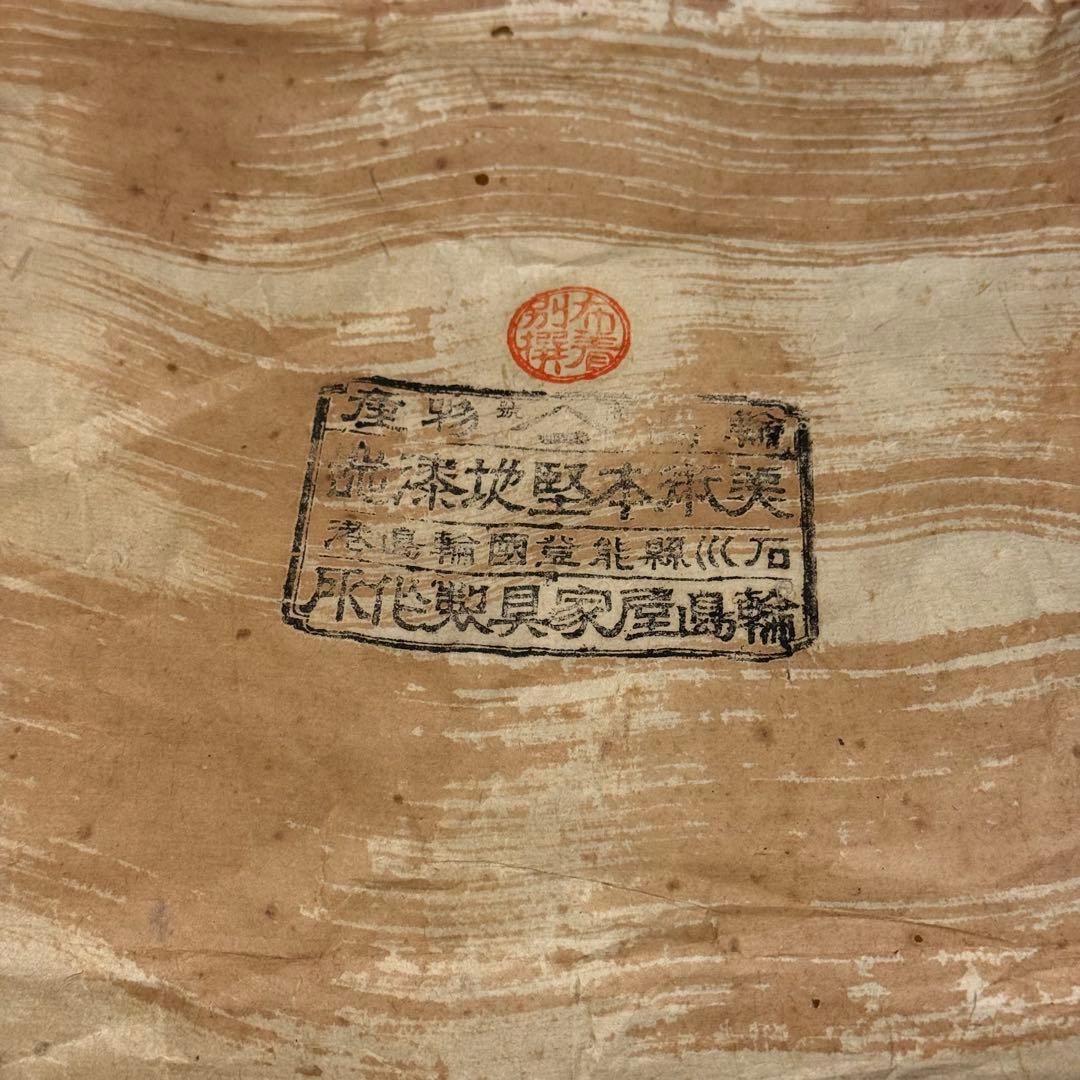 布着
別撰
輪嶋 物産
美術本堅地漆器
石川縣能登國輪嶋港
輪嶋産家具製作所